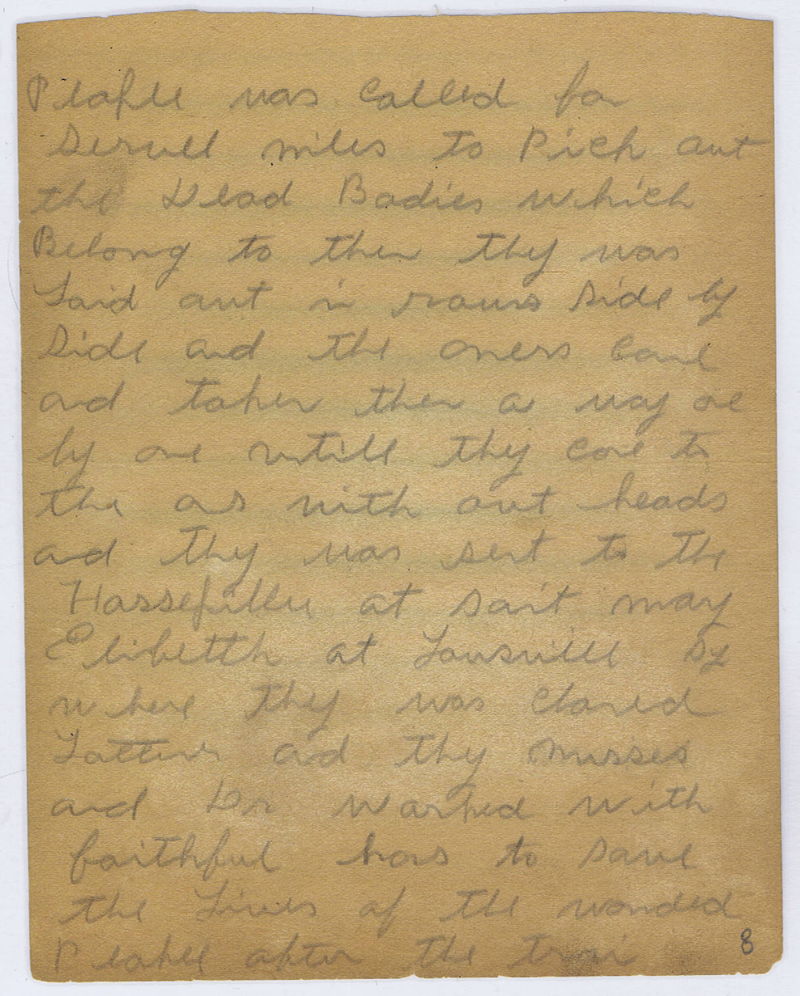 People was Called for
Servell miles to Pick out
the Dead Bodies which
Belong to then thy was
Laid out in rows side by
side and the oners cone
and taken then a way one
by one untill thy cone to
the ons with out heads
and thy was sent to the
at saint may
Elibetth at Lousville Ky
where thy was
and thy nurses
and Dr Worked with
faithful hors to save
the Lives of the wonded
People after the train
8